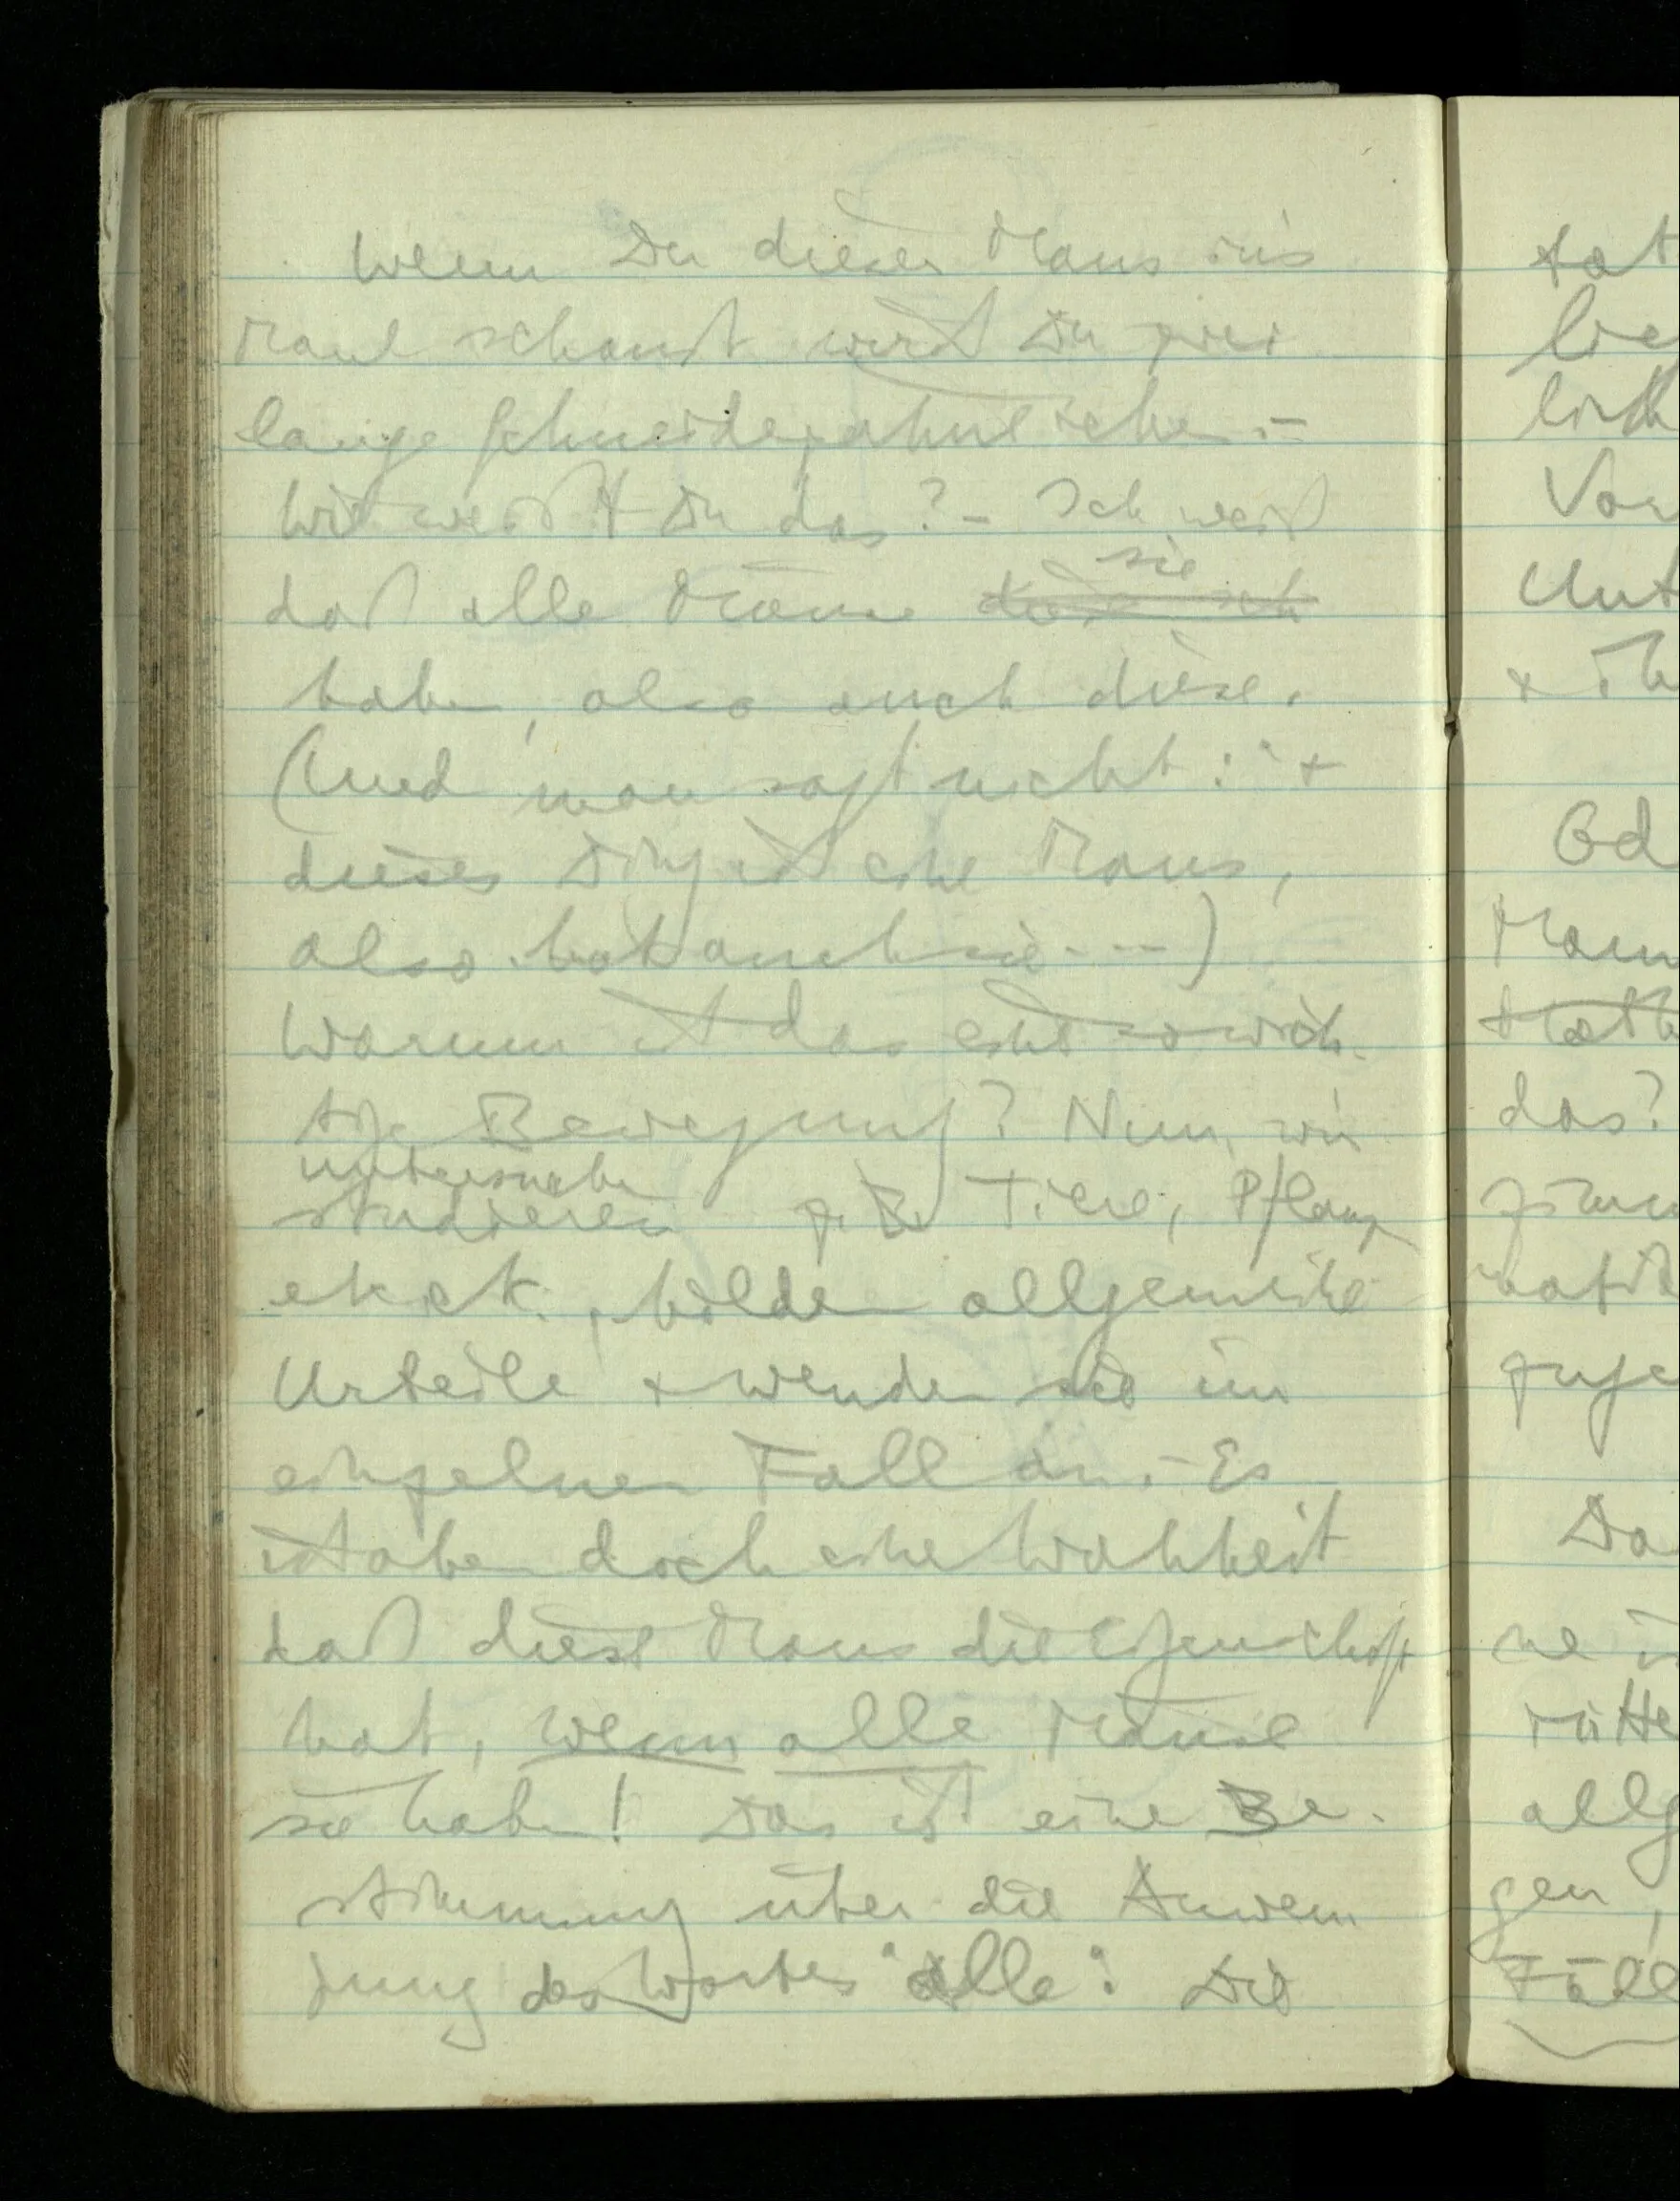 Wenn Du dieser Maus ins
Maul schaust wirst Du zwei
lange Schneidezähne sehen. –
Wie weißt Du das? – Ich weiß
daß alle Mäuse sie
haben, also auch diese.
(Und man sagt nicht: "+
dieses Ding ist eine Maus,
also hat auch sie - - -)
Warum ist das eine so wich-
tige Bewegung? Nun, wir
untersuchen
studieren z.B. Tiere, Pflanz
en etc., bilden allgemeine
Urteile + wenden sie im
einzelnen Fall an. – Es
ist aber doch eine Wahrheit
daß diese Maus die Eigenschaft
hat, wenn alle Mäuse
sie haben! Das ist eine Be-
stimmung über die Anwen
dung des Wortes "alle". Die
tat
Vor
Unt
das?
gen,